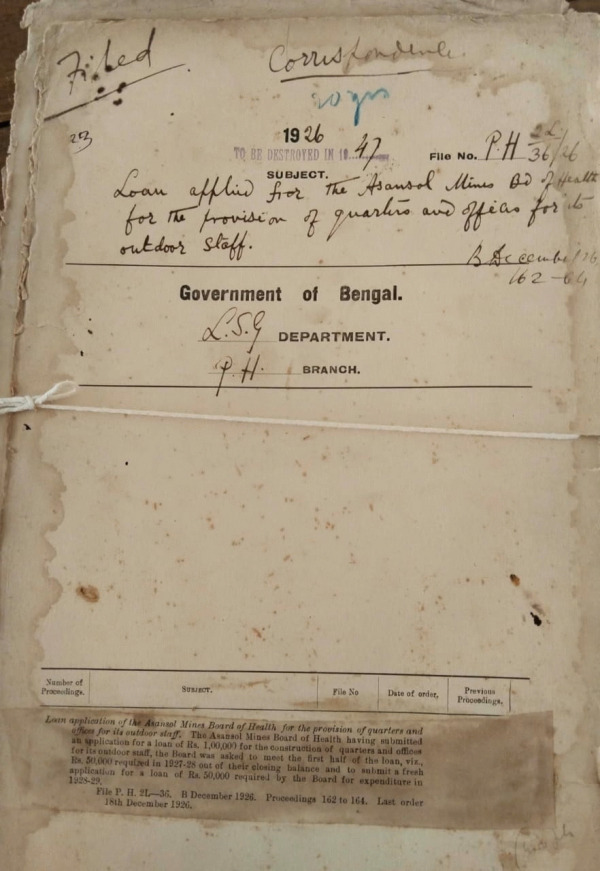 Filed
Correspondence
20 yrs
23
1926
TO BE DESTROYED IN 1947
File No. P.H 2L/36/26
SUBJECT.
Loan applied for the Asansol Mines Bd of Health
for the provision of quarters and offices for its
outdoor staff.
B December 26
162-64
Government of Bengal.
L.S.G DEPARTMENT.
P.H. BRANCH.
Number of Proceedings.
SUBJECT.
File No
Date of order,
Previous Proceedings,
Loan application of the Asansol Mines Board of Health for the provision of quarters and
offices for its outdoor staff. The Asansol Mines Board of Health having submitted
an application for a loan of Rs. 1,00,000 for the construction of quarters and offices
for its outdoor staff, the Board was asked to meet the first half of the loan, viz.,
Rs. 50,000 required in 1927-28 out of their closing balance and to submit a fresh
application for a loan of Rs. 50,000 required by the Board for expenditure in
1928-29.
File P. H. 2L—36. B December 1926. Proceedings 162 to 164. Last order
18th December 1926.